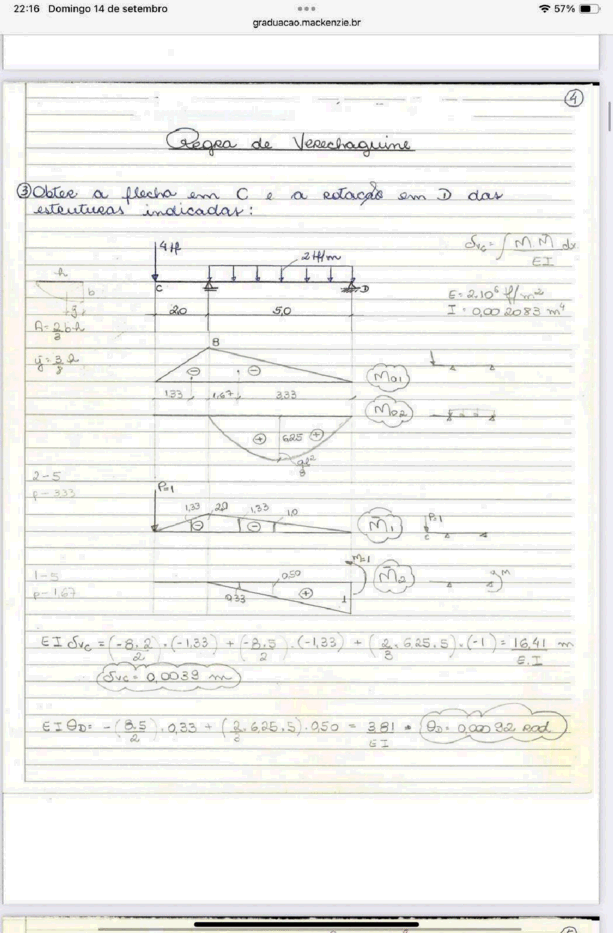 22:16 Domingo 14 de setembro
57%
graduacao.mackenzie.br
4
Regra de Verechaguine
③ Obter a flecha em C e a rotação em D das
estruturas indicadas:
δvc = ∫ M M̄ dx
EI
4 tf
2 tf/m
C
D
E = 2.10⁶ tf/m²
I = 0,002083 m⁴
2,0
5,0
b
A = 2 b.h
3
8
B
⊖
⊖
M01
1,33
1,67
3,33
M02
⊕
6,25
⊕
ql²
8
2 - 5
p - 3,33
P=1
1,33
2,0
1,33
1,0
⊖
⊖
M̄1
P=1
C
1 - 5
p - 1,67
M=1
0,50
0,33
⊕
1
M̄2
M
EI δvc = (-8.2).(-1,33) + (-8.5).(-1,33) + (2.6,25.5).(-1) = 16,41 m
2 2 3 E.I
δvc = 0,0039 m
EI θD = -(8.5).0,33 + (2.6,25.5).0,50 = 3,81
2 EI
θD = 0,00092 rad